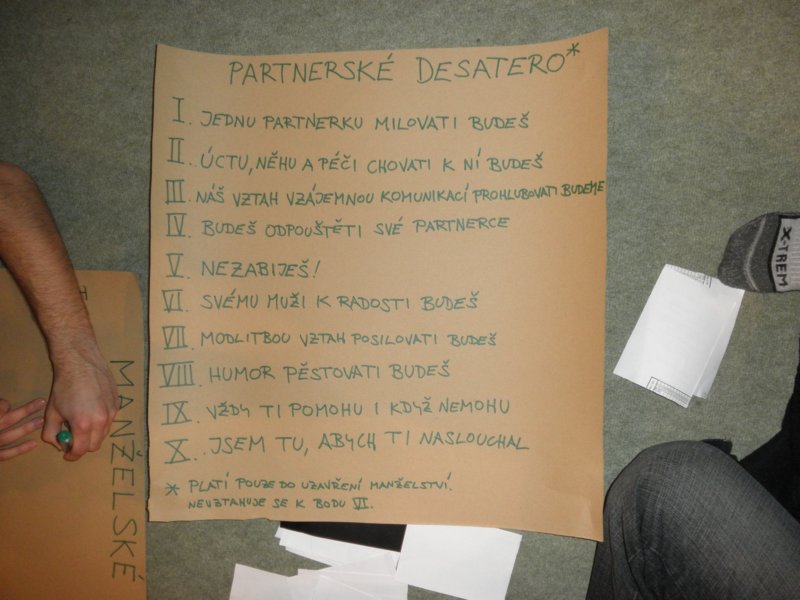 PARTNERSKÉ DESATERO*
I. JEDNU PARTNERKU MILOVATI BUDEŠ
II. ÚCTU, NĚHU A PÉČI CHOVATI K NÍ BUDEŠ
III. NÁŠ VZTAH VZÁJEMNOU KOMUNIKACÍ PROHLUBOVATI BUDEME
IV. BUDEŠ ODPOUŠTĚTI SVÉ PARTNERCE
V. NEZABIJEŠ!
VI. SVÉMU MUŽI K RADOSTI BUDEŠ
VII. MODLITBOU VZTAH POSILOVATI BUDEŠ
VIII. HUMOR PĚSTOVATI BUDEŠ
IX. VŽDY TI POMOHU I KDYŽ NEMOHU
X. JSEM TU, ABYCH TI NASLOUCHAL
* PLATÍ POUZE DO UZAVŘENÍ MANŽELSTVÍ.
NEVZTAHUJE SE K BODU VI.
MANŽELSKÉ
X-TREM